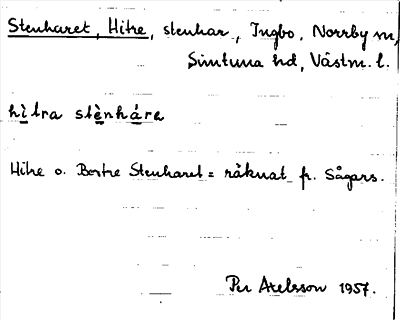 Stenharet, Hitre, stenhar, Ingbo, Norrby m,
Simtuna hd, Västm. l.
hìtra stènháre
Hitre o. Bortre Stenharet = räknat fr. Sågars.
Per Axelsson 1957.